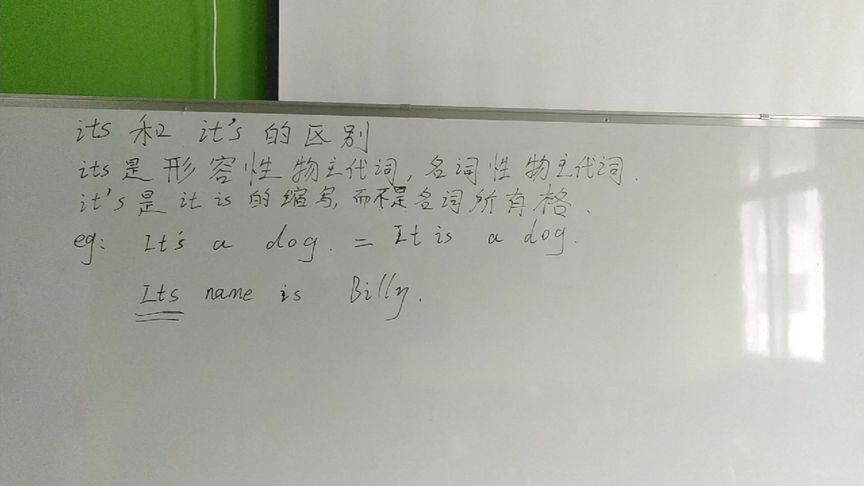 its 和 it's 的区别
its 是形容性物主代词, 名词性物主代词.
it's 是 it is 的缩写, 而不是名词所有格.
eg: It's a dog. = It is a dog.
Its name is Billy.